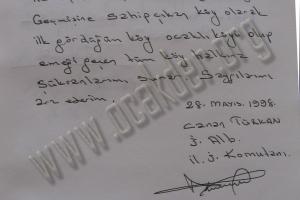 Geçmişine sahip çıkan köy olarak
ilk gördüğüm köy ocaklı köyü olup
emeği geçen tüm köy halkına
Şükranlarımı sunar Saygılarımı
arz ederim.
28. MAYIS. 1998.
Canan TÜRKAN
J. Alb.
il. J. Komutanı.
www.ocakder.org